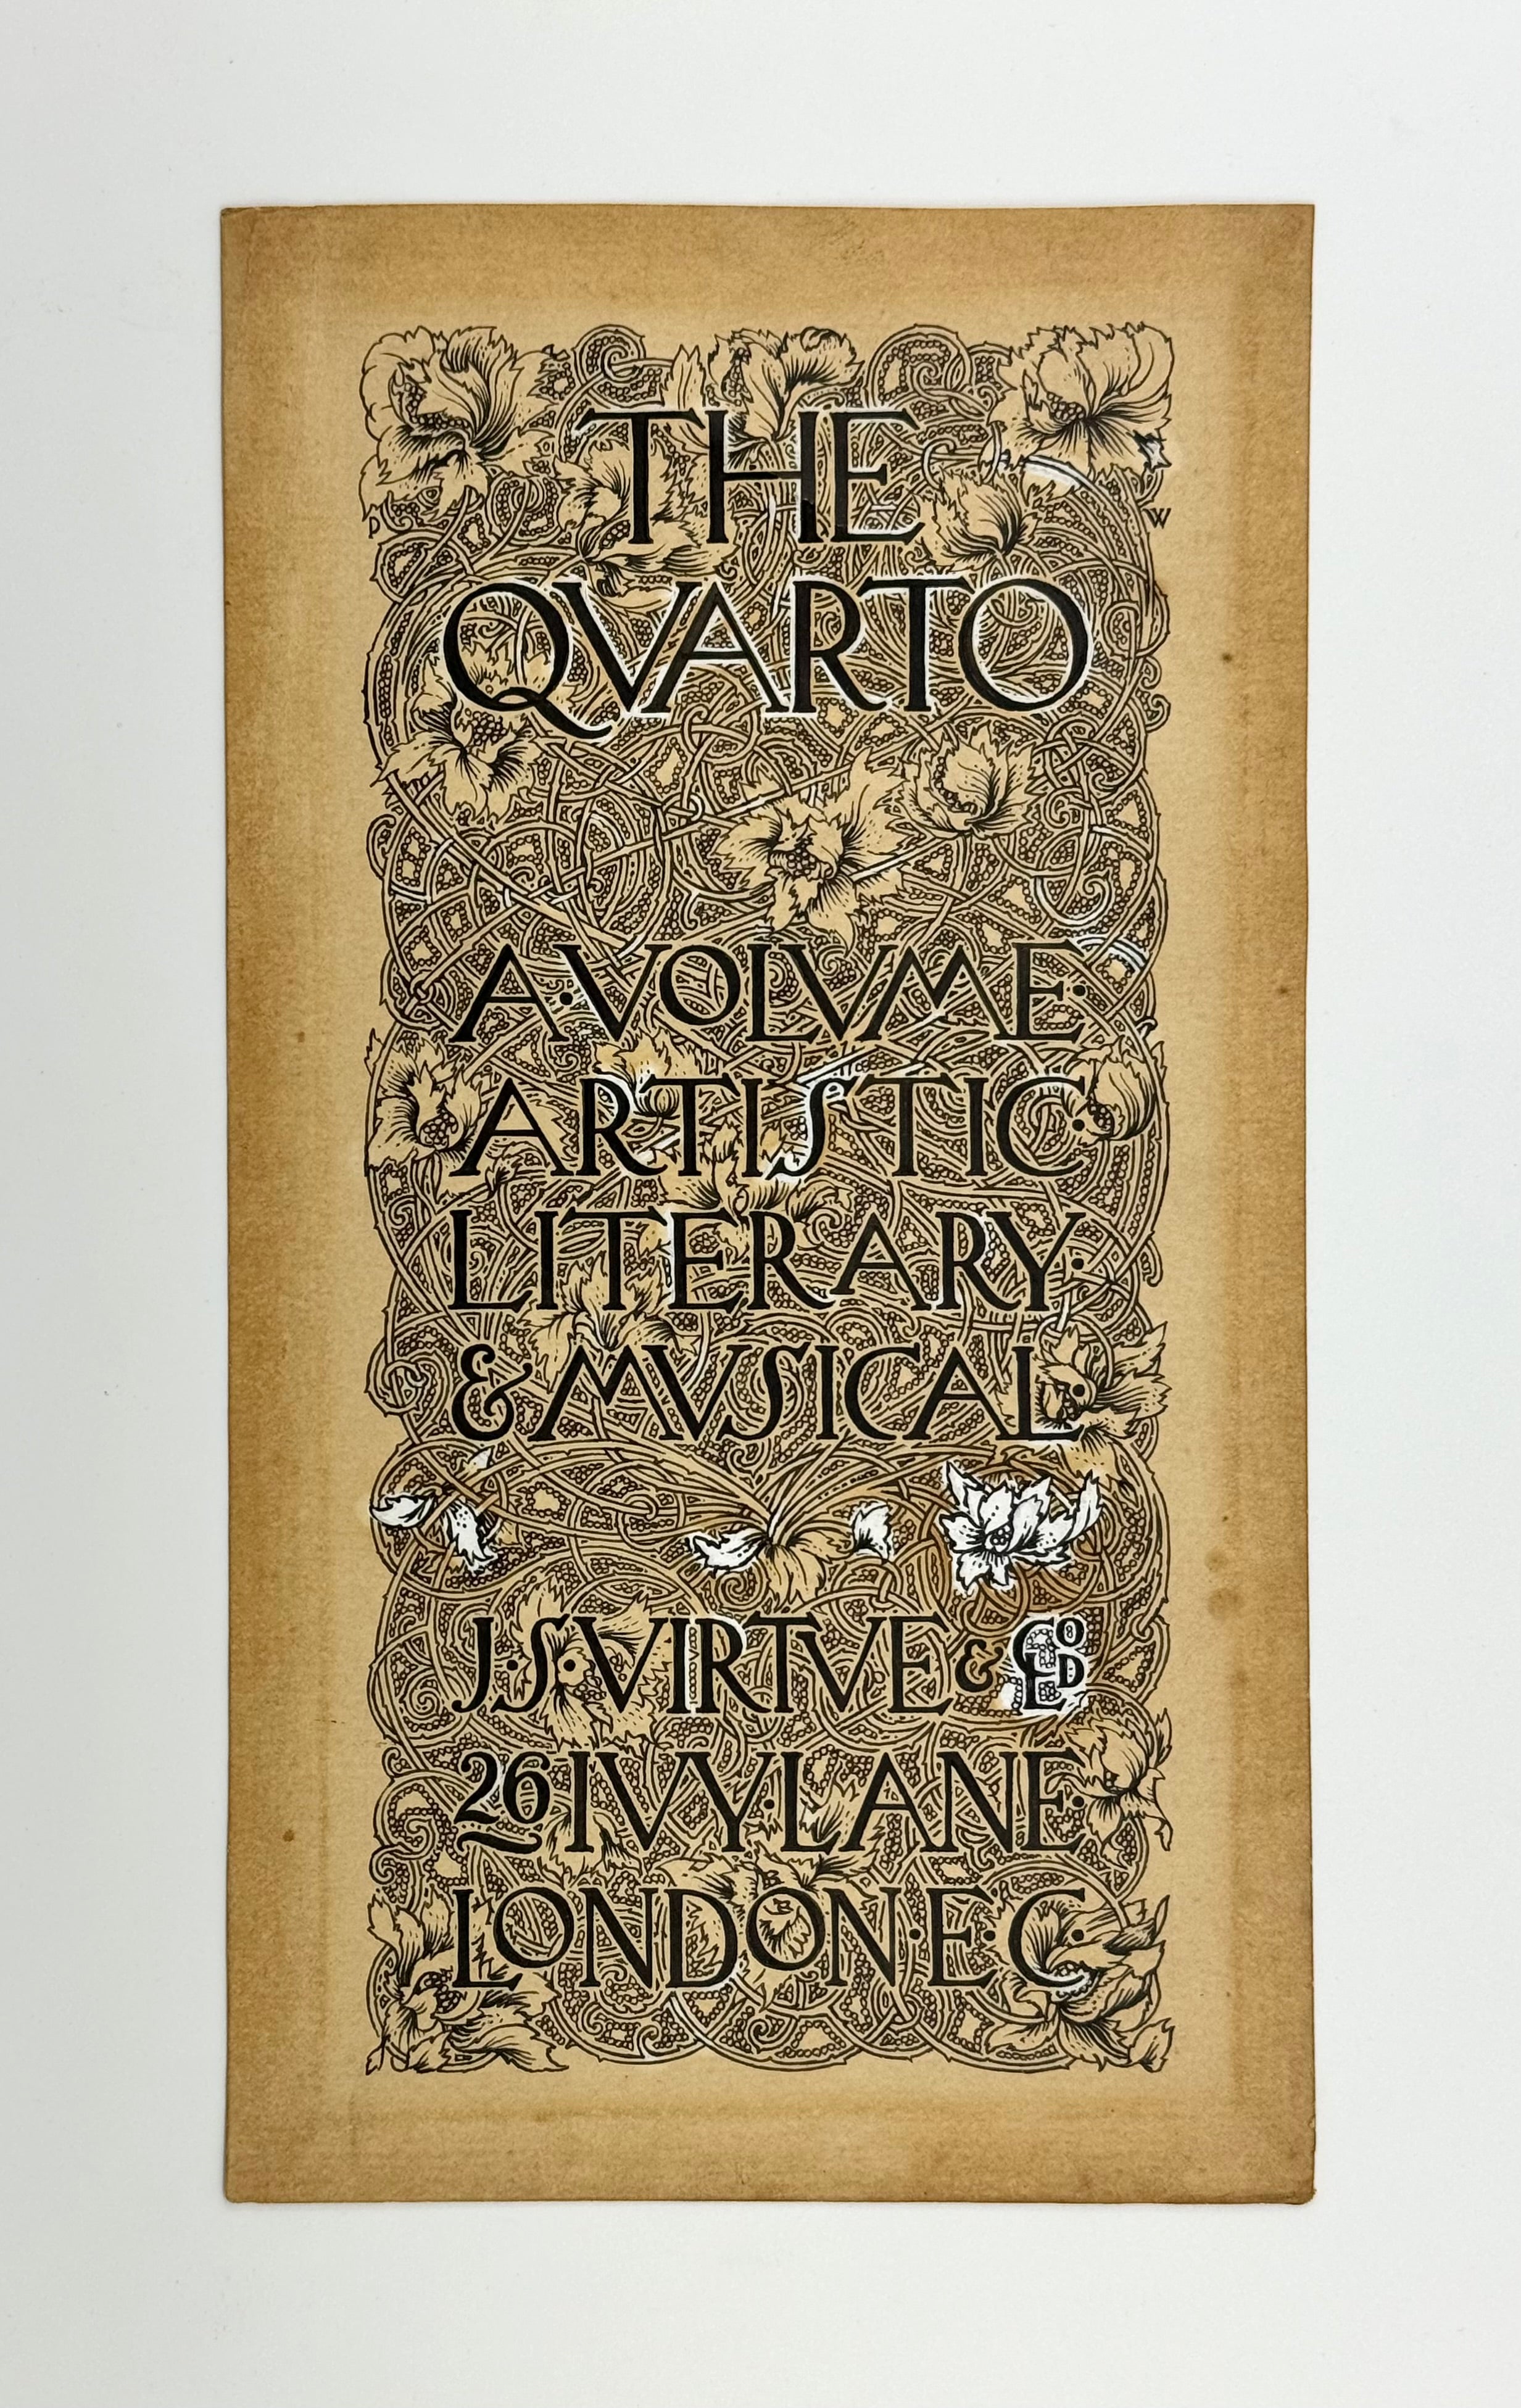 THE
P W
QVARTO
A·VOLVME·
ARTISTIC·
LITERARY·
& MVSICAL·
J·S·VIRTVE & CO LD
26 IVY·LANE·
LONDON·E·C·